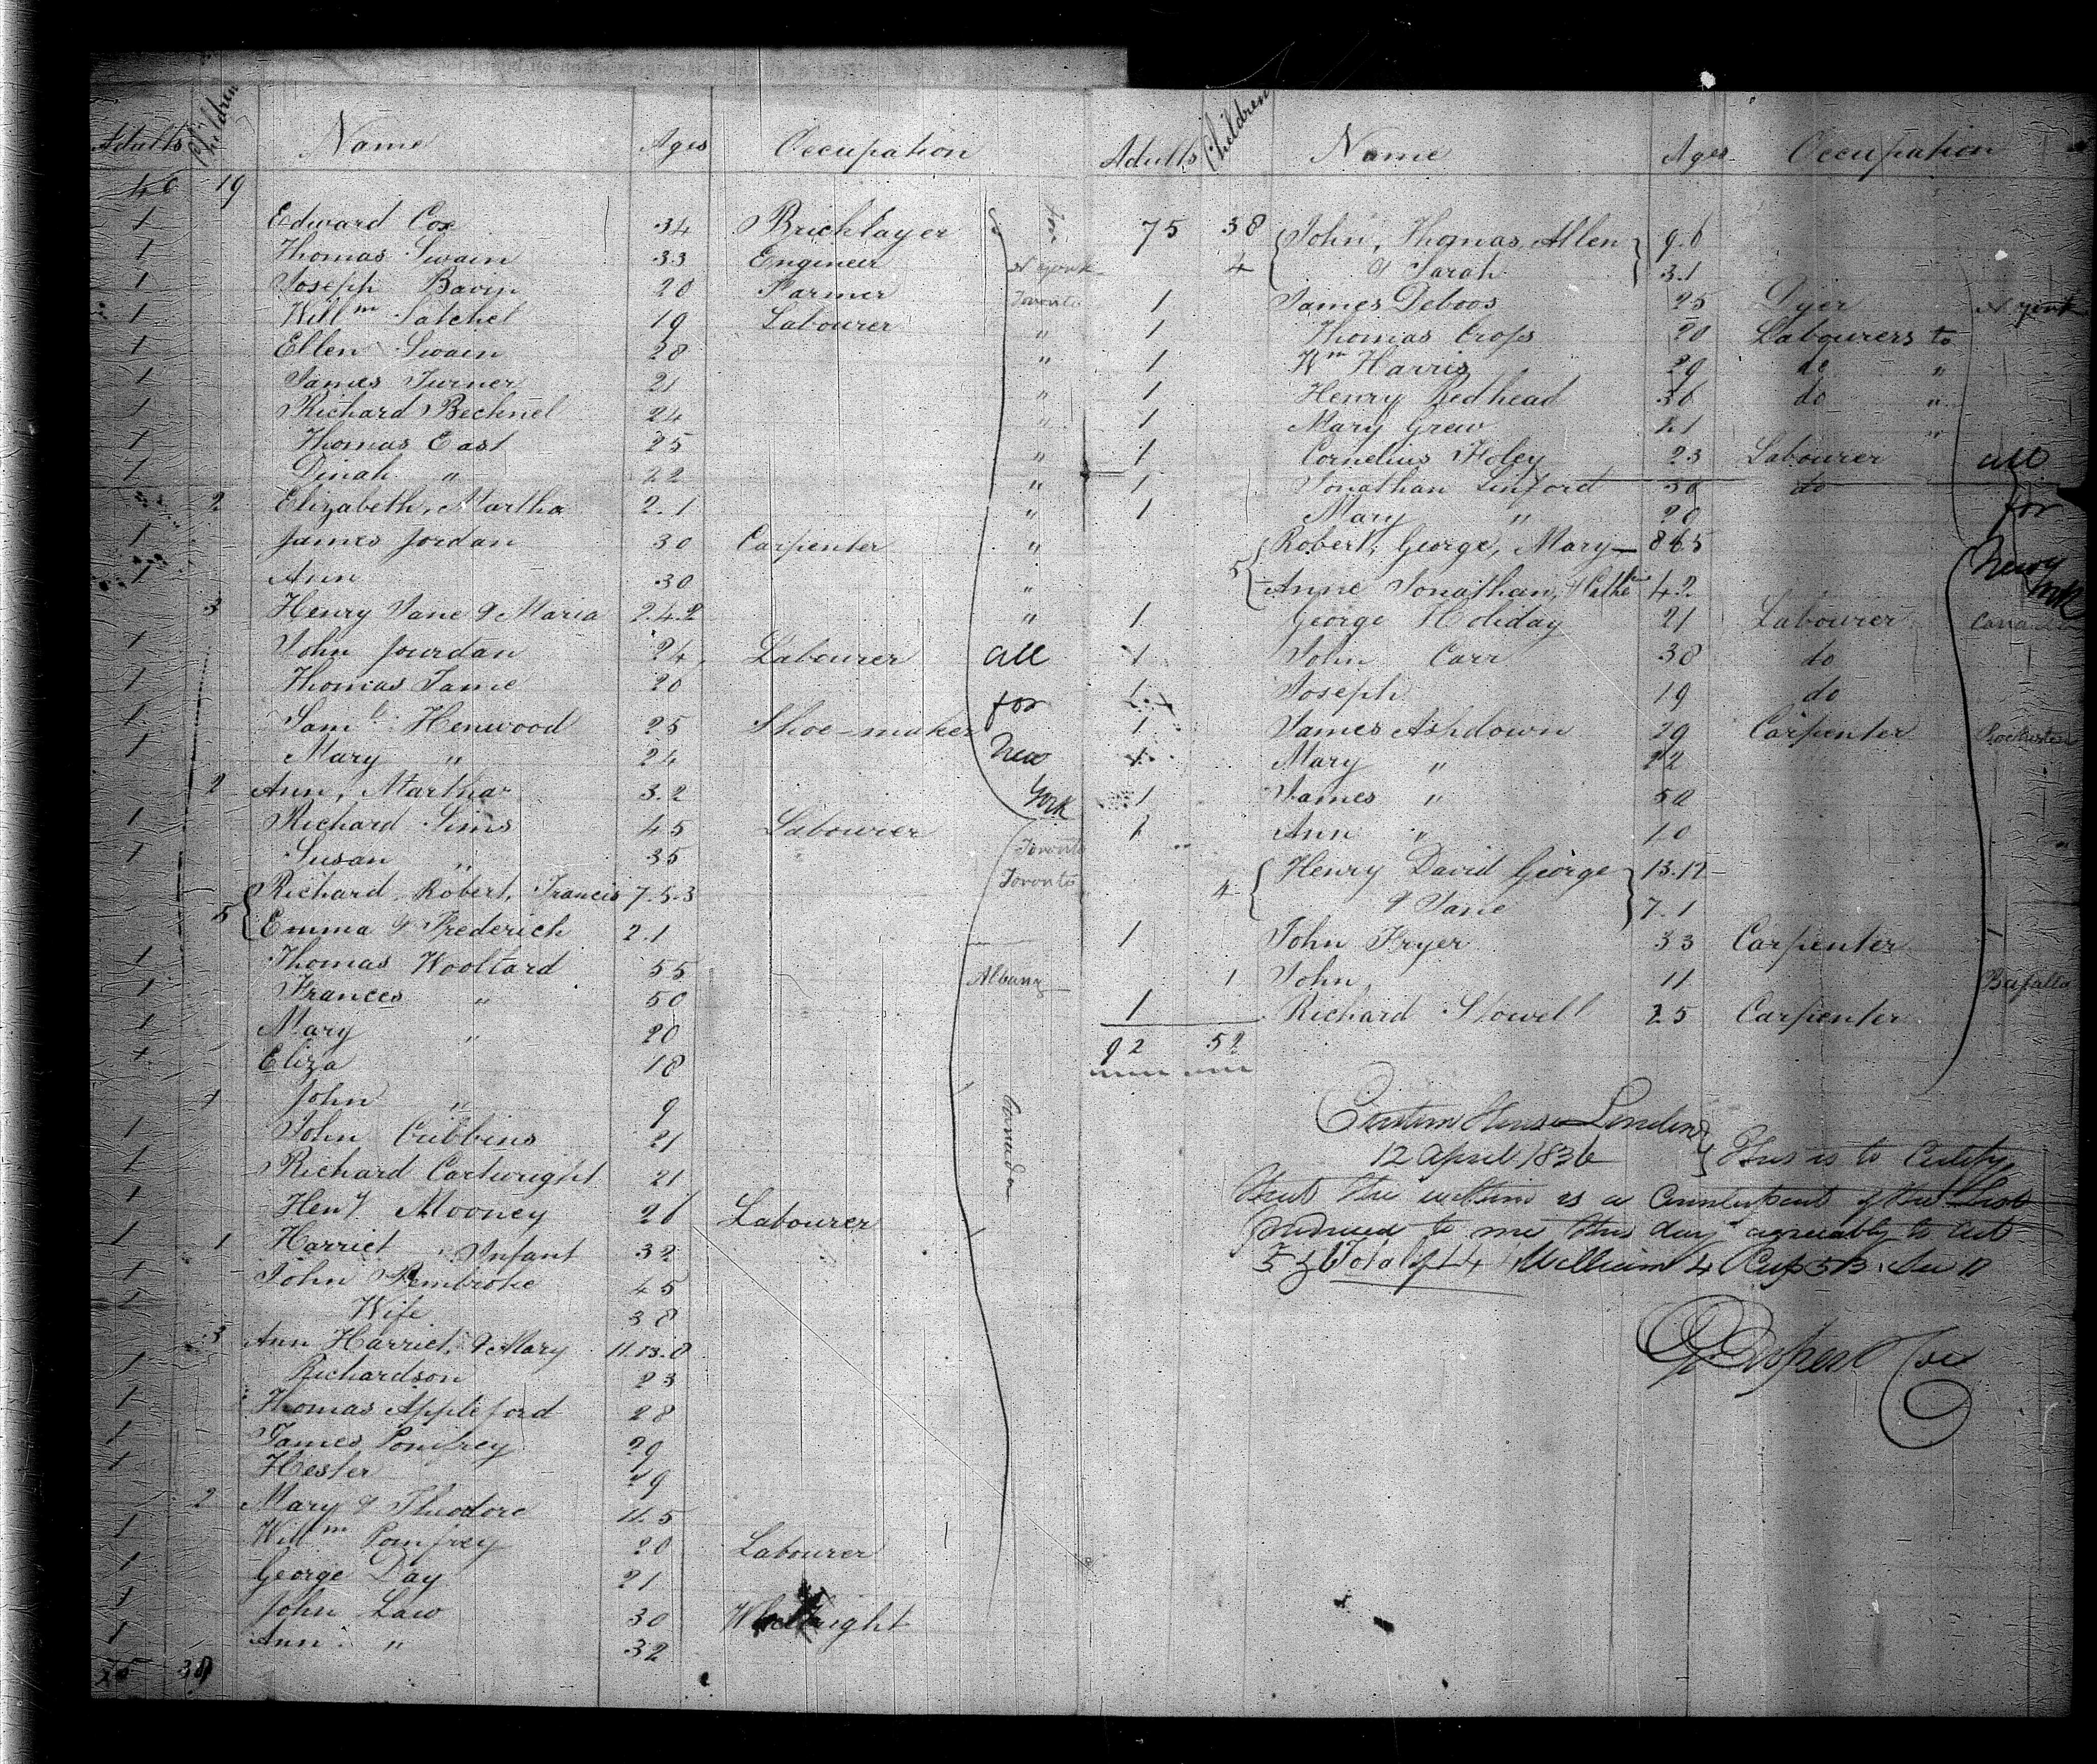 Adults Children Name Ages Occupation
40 19
1 Edward Cox 34 Bricklayer for
1 Thomas Swain 33 Engineer N York
1 Joseph Bavin 20 Farmer Toronto
1 Willm Satchel 19 Labourer "
1 Ellen Swain 28 "
1 James Turner 21 "
1 Richard Bechnel 24 "
1 Thomas East 25 "
1 Dinah " 22 "
2 Elizabeth, Martha 2.1 "
1 James Jordan 30 Carpenter "
1 Ann 30 "
3 Henry Jane & Maria 2.4.2 "
1 John Jourdan 24 Labourer all
1 Thomas Tame 20 for
1 Saml Henwood 25 Shoe-maker New
1 Mary " 24
2 Ann, Martha 3.2 York
1 Richard Sims 45 Labourer Toronto
1 Susan " 35 Toronto
5 Richard, Robert, Francis 7.5.3
Emma & Frederick 2.1
1 Thomas Wooltard 55 Albany
1 Frances " 50
1 Mary " 20
1 Eliza 18
1 John " 9 Canada
1 John Cubbins 21
1 Richard Cartwright 21
1 Heny Mooney 26 Labourer
1 1 Harriet " Infant 32
1 John Pembroke 45
Wife 38
3 Ann Harriet, & Mary 11.13.8
1 Richardson 23
1 Thomas Appleford 28
1 James Pomfrey 29
1 Hester 29
2 Mary & Theodore 11.5
1 Willm Pomfrey 20 Labourer
1 George Day 21
1 John Law 30
1 Ann " 32
75 38
Adults Children Name Ages Occupation
75 38 John, Thomas, Allen 9.6
4 & Sarah 3.1
1 James Deboos 25 Dyer N York
1 Thomas Crofs 20 Labourers to
1 Wm Harris 29 do "
1 Henry Redhead 36 do "
1 Mary Grew 21 "
1 Cornelius Foley 23 Labourer all
1 Jonathan Linford 30 do for
1 Mary " 28
5 Robert, George, Mary 8 6 5 New
Anne Jonathan, 4.2 York
1 George Holiday 21 Labourer Canada
1 John Carr 38 do
1 Joseph 19 do
1 James Ashdown 29 Carpenter Rochester
1 Mary " 22
1 James " 50
1 Ann "
4 Henry David George 13.12
& Jane 7.1
1 John Fryer 33 Carpenter
1 John 11 Buffallo
1 Richard Stowell 25 Carpenter
92 52
Custom House London
12 April 1836 This is to Certify
that the within is a Counterpart of the List
produced to me this day agreeably to Act
5 & 6 William 4 Cap 53. Sec 11